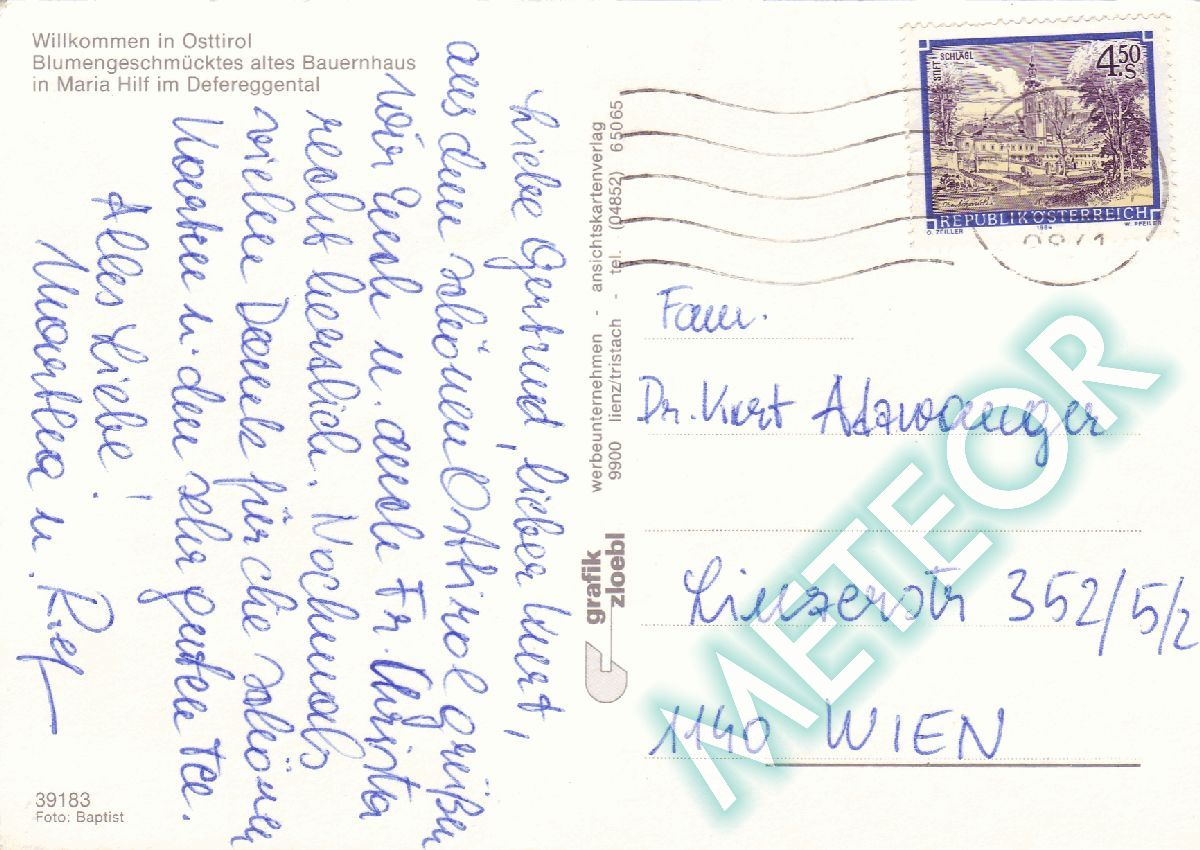 Willkommen in Osttirol
Blumengeschmücktes altes Bauernhaus
in Maria Hilf im Defereggental
Liebe Gertrud, lieber Kurt,
aus dem schönen Osttirol grüßen
wir Euch u. auch Fr. Christa
recht herzlich. Nochmals
vielen Dank für die schönen
Karten u. den sehr guten Tee.
Alles Liebe!
Martha u.
39183
Foto: Baptist
werbeunternehmen - ansichtskartenverlag
9900 lienz/tristach - tel. (04852) 65065
grafik
zloebl
STIFT SCHLÄGL
4.50 S
REPUBLIK ÖSTERREICH
O. ZEILLER 1984 W. PFEILER
Fam.
Dr. Kurt Adzwanger
Linzerstr 352/5/2
1140 WIEN
METEOR